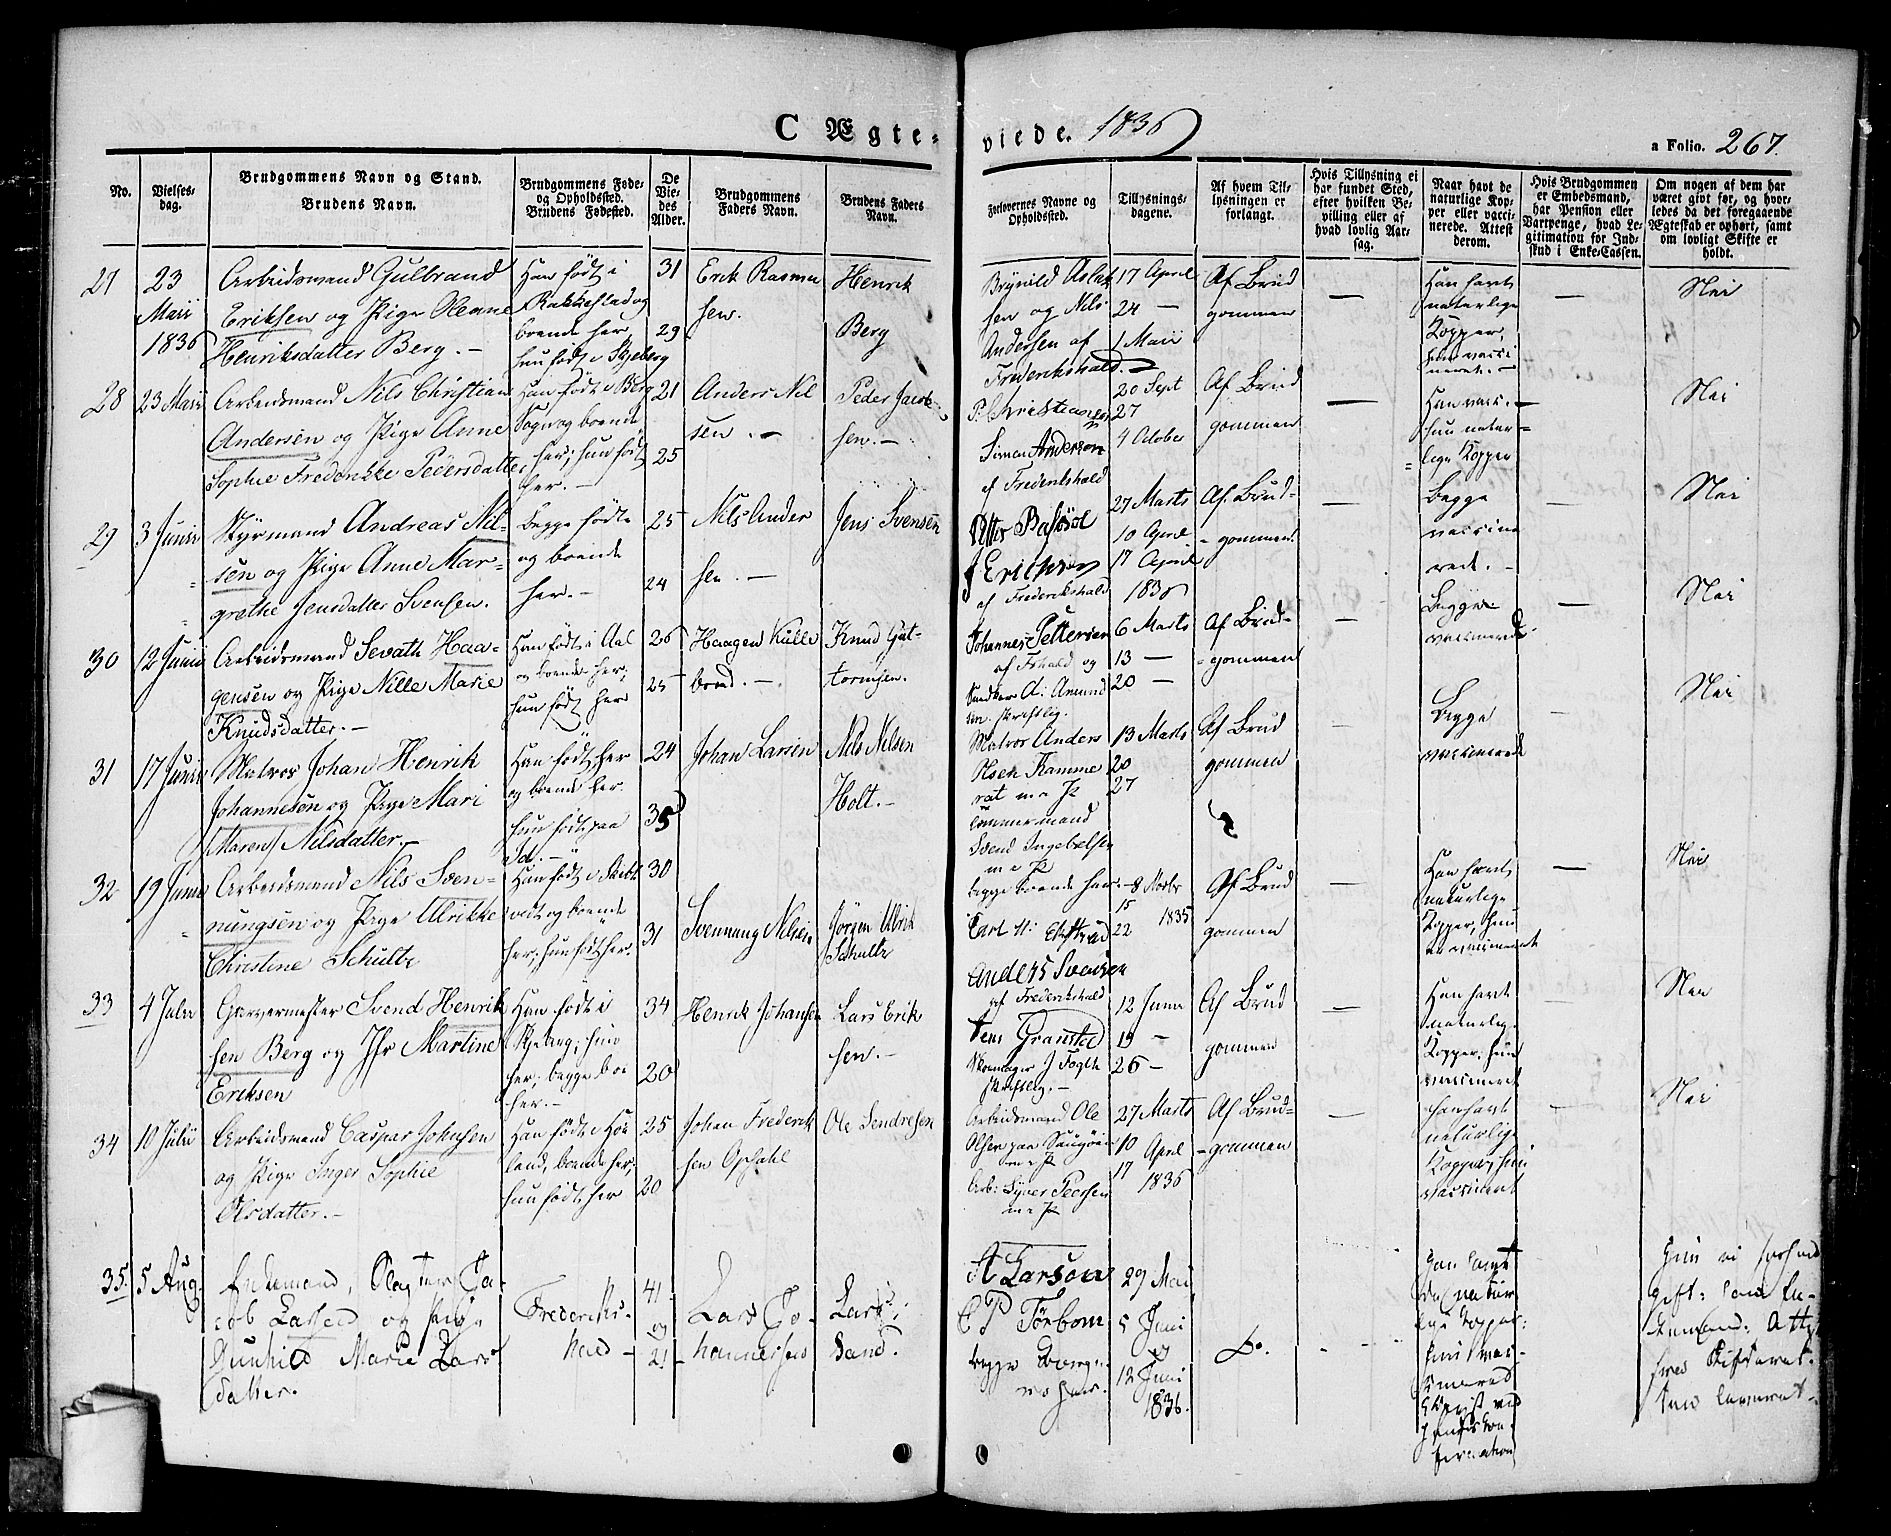 C Ægte-
viede. 1836
a Folio. 267.
No.
Vielses-
dag.
Brudgommens Navn og Stand.
Brudens Navn.
Brudgommens Føde-
og Opholdssted.
Brudens Fødested.
De
Vie-
des
Alder.
Brudgommens
Faders Navn.
Brudens Faders
Navn.
Forlovernes Navne og
Opholdssted.
Tillysnings-
dagene.
Af hvem Til-
lysningen er
forlangt.
Hvis Tillysning ei
har fundet Sted,
efter hvilken Be-
villing eller af
hvad lovlig Aar-
sag.
Naar havt de
naturlige Kop-
per eller vacci-
nerede. Attest
derom.
Hvis Brudgommen
er Embedsmand,
har Pension eller
Vartpenge, hvad Le-
gitimation for Ind-
skud i Enke-Cassen.
Om nogen af dem har
været givt før, og hvor-
ledes da det foregaaende
Ægteskab er ophørt, samt
om lovligt Skifte er
holdt.
27
23
Maii
1836
Arbeidsmand Gulbrand
Eriksen og Pige Oleane
Henriksdatter Berg. -
Han født i
Rakkestad og
boende her,
hun født i Skjeberg
31
29
Erik Rasmu
sen.
Henrik
Berg
Brynild Aslak
sen og Nils
Andersen af
Frederikshald.
17 April
24 -
1 Maii
Af Brud
gommen
-
Han havt
naturlige
Kopper,
hun vacci
neret. -
-
Nei
28
23 Maii
Arbeidsmand Nils Christian
Andersen og Pige Anne
Sophie Frederikke Pedersdatter
Han født i Berg
Sogn og boende
her; hun født
her. -
21
25
Anders Nil
sen. -
Peder Jacob
sen. -
P. Christiansen
Simen Anderson
af Frederikshald
20 Sept
27
4 October
Af Brud
gommen
-
Han vacc.
hun natur-
lige Kopper
-
Nei
29
3 Junii
Styrmand Andreas Nil-
sen og Pige Anne Mar-
grethe Jensdatter Svensen.
Begge fødte
og boende
her. -
25
24
Nils Ander
sen. -
Jens Svensen
J Erichsen
af Frederikshald
27 Marts
10 April
17 April
1836
Af Brud-
gommen
-
Begge
vaccine
rede. -
-
Nei
30
12 Junii
Arbeidsmand Sevath Haa-
gensen og Pige Nille Marie
Knudsdatter. -
Han født i Aal
og boende her;
hun født her
26
25
Haagen Kulle
brod. -
Knud Gut-
tormsen.
Johannes Pettersen
af Fhald og
Snedker A: Amund
sen. skriftlig.
6 Marts
13 -
20 -
Af Brud-
gommen
-
Begge
vaccinerede
-
Nei
31
17 Junii
Matros Johan Henrik
Johannesen og Pige Mari
(Maren) Nilsdatter. -
Han født her
og boende her.
hun født paa
Id. -
24
35
Johan Larsen
Nils Nilsen
Holt. -
Matros Anders
Olsen Kamme
rat m. P.
Tømmermand
Svend Ingebretsen
m. P.
begge boende her.
13 Marts
20
27
Af Brud
gommen
-
Begge
vaccinerede
-
Nei
32
19 Junii
Arbeidsmand Nils Sven-
nungsen og Pige Ulrikke
Christine Schultz
Han født i Skibt
vedt og boende
her; hun født her.
30
31
Svennung Nilsen
Jørgen Ulrik
Schultz
Carl H: Ekstrød
Anders Svensen
af Frederikshald
8 Novbr
15
22 1835
Af Brud
gommen
-
Han havt
naturlige
Kopper, hun
er vaccineret
-
Nei
33
4 Julii
Garvermester Svend Henrik
sen Berg og Jfr Martine
Eriksen
Han født i
Skjeberg; hun
her; begge boe
her. -
34
20
Henrik Johansen
Lars Erik
sen. -
Jens Gransted
Skomager J Fogth
skriftlig. -
12 Junii
19 -
26 -
Af Brud
gommen
-
Han havt
naturlig.
Kopper; hun
vaccineret
-
Nei
34
10 Julii
Arbeidsmand Caspar Johnsen
og Pige Inger Sophie
Olsdatter. -
Han født i Høi
land, boende her;
hun født her
25
20
Johan Frederik
sen Opsahl
Ole Sendresen
Arbeidsmand Ole
Olsen paa Saugøen
m. P.
Arb: Syver Peersen
m. P.
27 Marts
10 April
17 1836
Af Brud-
gommen
-
Han havt
naturlige
Kopper, hun
vaccineret
-
Nei
35.
5 Aug.
Enkemand, Jacob
Larsen og Pige
Gunhild Marie Lars
datter.
Frederiks-
hald -
41
og
21
Lars Jo-
hannessen
Lars
Sand.
A Larson
C P Törbom
begge Borge-
re her.
29 Mai
5 Juni
og
12 Juni
1836.
Do.
Han havt
de natur
lige Kopper:
hun vac-
cinered
Bevist ved
hendes Con-
firmation
Hun ei forhen
gift: han En-
kemand: Attest
fra Skifteret-
ten leveret-